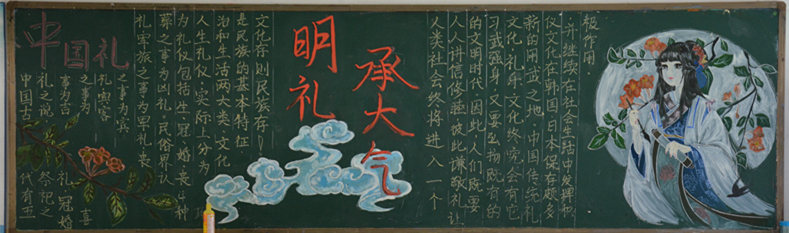 中国礼
中国古代有五
礼之说祭祀之
事为吉礼冠婚
之事为喜
礼宾客
之事为宾
礼军旅之事为军礼丧
葬之事为凶礼民俗界认
为礼仪包括生、冠、婚、丧4种
人生礼仪.实际上分为政
治和生活两大类.文化
是民族的基本特征
文化存则民族存!
明礼
承大气
人类社会终将进入一个
人人讲信修睦、彼此谦敬礼让
的文明时代,因此,人们既要
习武强身,又要物既有的
文化,礼乐文化终究会有它
新的用武之地.中国传统礼
仪文化在韩国、日本保存颇多
,并继续在社会生活中发挥积
极作用.